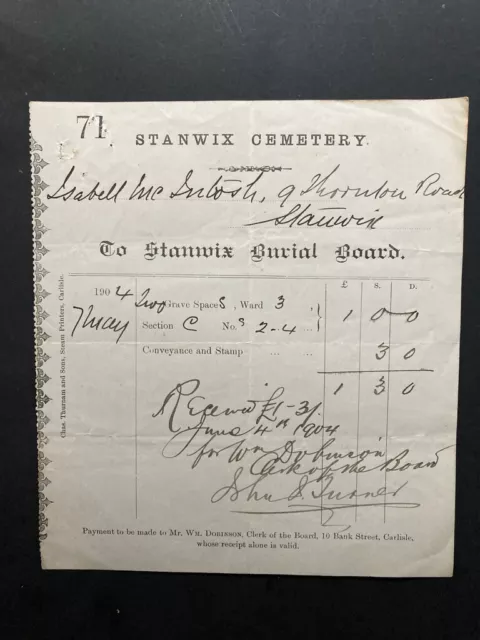 71
STANWIX CEMETERY.
Isabell Mc Intosh, 9 Thornton Road
Stanwix
To Stanwix Burial Board.
£ S. D.
1904 Two Grave Spaces, Ward 3
7 May Section C No.s 2-4 1 0 0
Conveyance and Stamp ... ... 3 0
1 3 0
Received £1-3/.
June 4th 1904
for Wm Dobinson
Clerk of the Board
John S. Turner
Payment to be made to Mr. WM. DOBINSON, Clerk of the Board, 10 Bank Street, Carlisle,
whose receipt alone is valid.
Chas. Thurnam and Sons, Steam Printers, Carlisle.